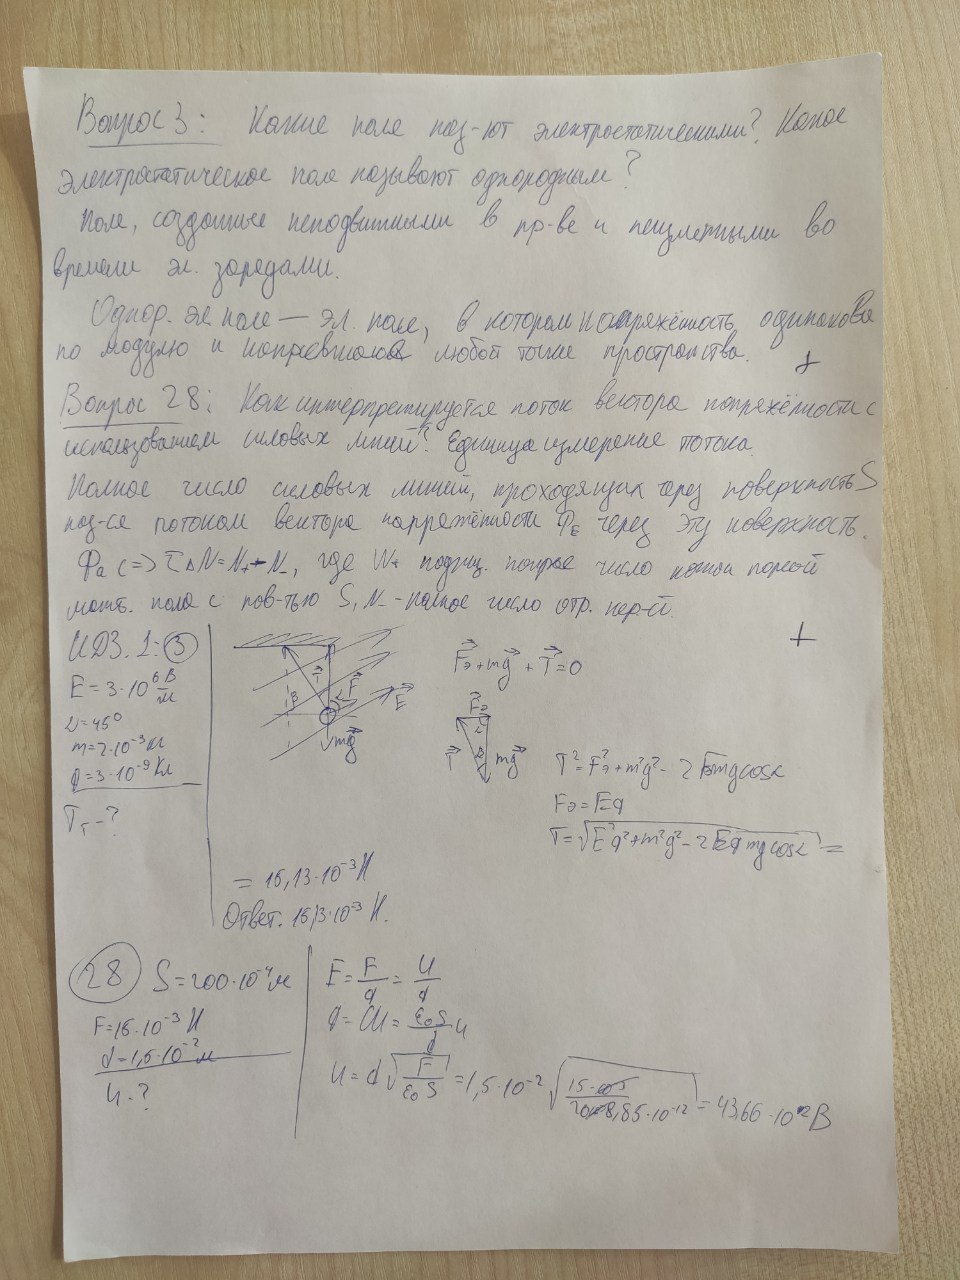 Вопрос 3: Какие поле наз-ют электростатическими? Какое
электростатическое поле называют однородным?
Поле, созданные неподвижными в пр-ве и неизменными во
времени эл. зарядами.
Однор. эл. поле — эл. поле, в котором напряжённость одинакова
по модулю и любой точке пространства. +
Вопрос 28: Как интерпретируется поток вектора напряжённости с
использованием силовых линий? Единица измерение потока.
Полное число силовых линий, проходящих через поверхность S
наз-ся потоком вектора напряжённости Ф_E через эту поверхность.
N_+ - N_-, где полное число
пола с пов-тью S, N_- - полное число отр. пер-й.
+
ИДЗ. 1: 3
E = 3·10^6 В/м
α = 45°
m = 2·10^-3 кг
q = 3·10^-9 Кл
T_т - ?
T β F α E mg
F_э + mg + T = 0
F_э α T β mg
T² = F_э² + m²g² - 2 F_э mg cosα
F_э = Eq
T = √(E²q² + m²g² - 2Eq mg cosα) =
= 15,13·10^-3 Н
Ответ. 10^-3 Н.
28 S = 200·10^-4 м
F = 15·10^-3 Н
d = 1,5·10^-2 м
U - ?
E = F/q = U/d
q = CU = ε₀S/d U
U = d √(F/ε₀S) = 1,5·10^-2 8,85·10^-12 = 43,66·10^2 В